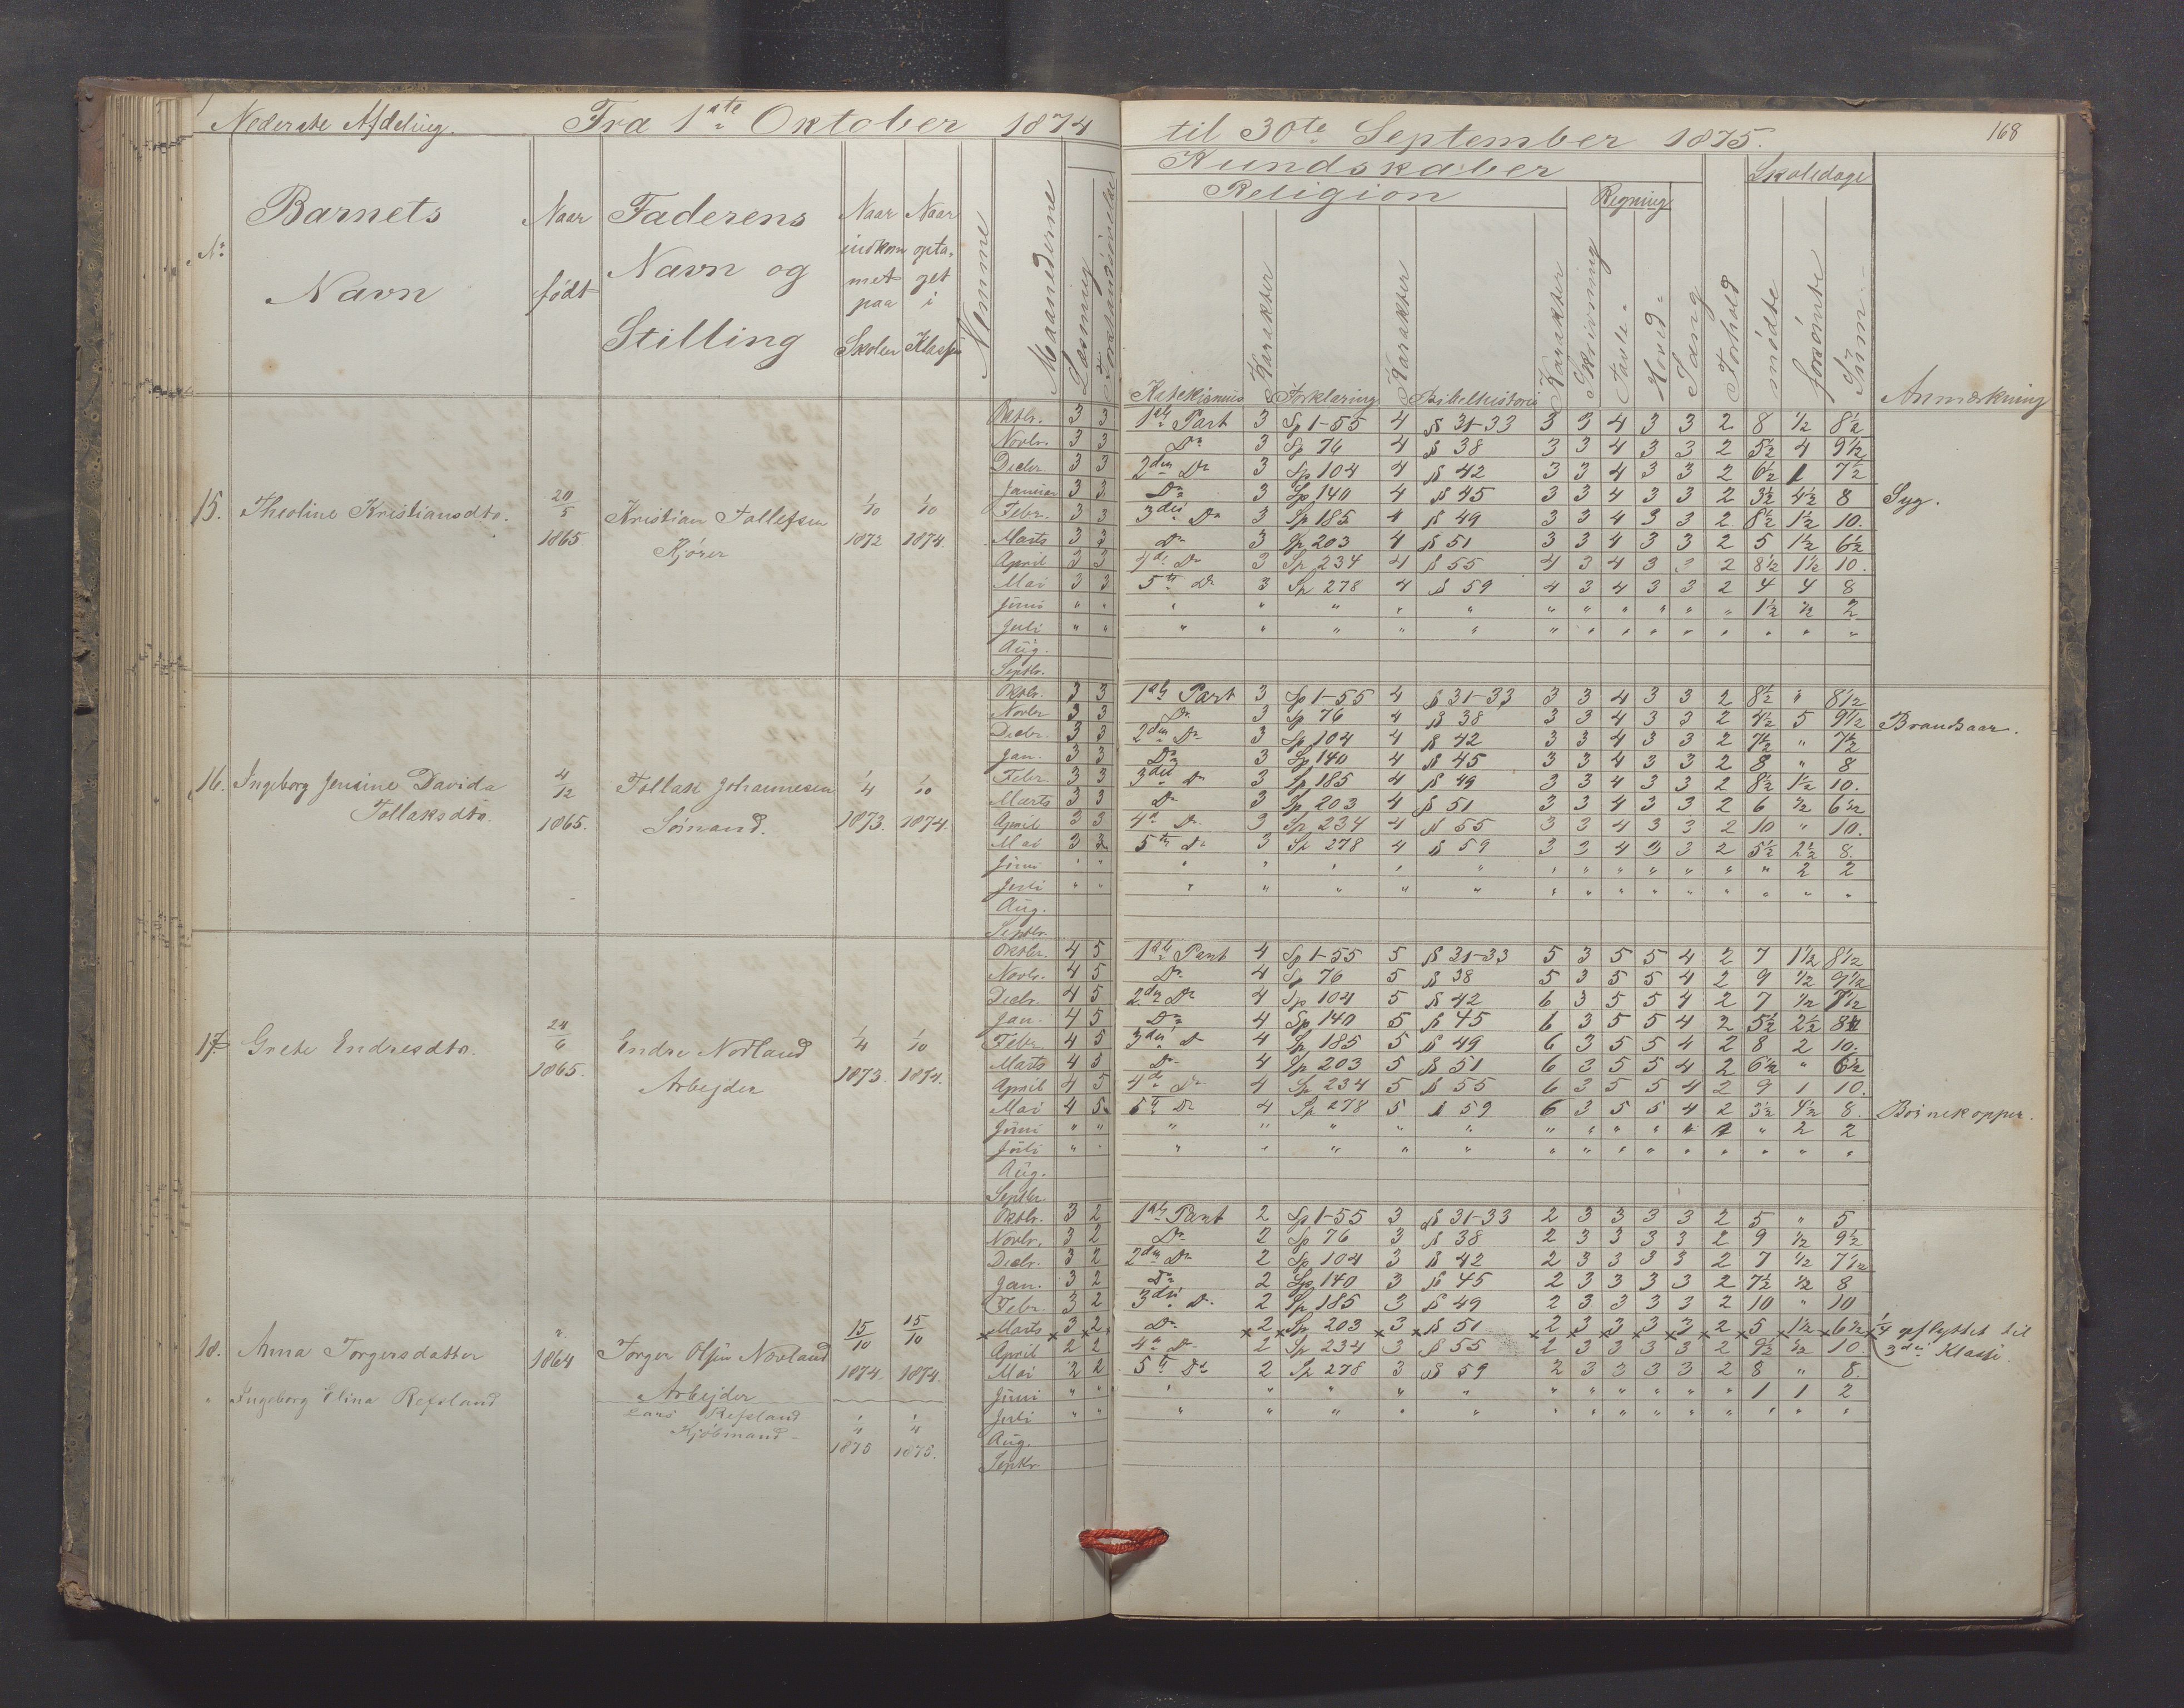 Nederste Afdeling. Fra 1ste Oktober 1874 til 30te September 1875. 168
Kundskaber Skoledage
Religion Regning
No Barnets Navn Naar født Faderens Navn og Stilling Naar indkommet paa Skolen Naar optaget i Klassen Nemme Maanederne Læsning Forstandsøvelse Katekismus Karakter Forklaring Karakter Bibelhistorie Karakter Skrivning Tavle- Hoved- Sang Forhold mødte forsömte Sum Anmerkning
Oktbr. 3 3 1ste Part 3 Sp 1-55 4 § 31-33 3 3 4 3 3 2 8 1/2 8 1/2
Novbr. 3 3 Do 3 Sp 76 4 § 38 3 3 4 3 3 2 5 1/2 4 9 1/2
Decbr. 3 3 2den Do 3 Sp 104 4 § 42 3 3 4 3 3 2 6 1/2 1 7 1/2
Januar 3 3 Do 3 Sp 140 4 § 45 3 3 4 3 3 2 3 1/2 4 1/2 8 Syg.
15. Theoline Kristiansdtr. 20/5 1865 Kristian Tollefsen Kjører 1/10 1872 1/10 1874.
Febr. 3 3 3die Do 3 Sp 185 4 § 49 3 3 4 3 3 2 8 1/2 1 1/2 10.
Marts 3 3 Do 3 Sp 203 4 § 51 3 3 4 3 3 2 5 1 1/2 6 1/2
April 3 3 4de Do 3 Sp 234 4 § 55 4 3 4 3 3 2 8 1/2 1 1/2 10.
Mai 3 3 5te Do 3 Sp 278 4 § 59 4 3 4 3 3 2 4 4 8
Juni " " " " " " " " " " " " " 1 1/2 1/2 2
Juli " " " " " " " " " " " " " " " "
Aug.
Septbr.
Oktbr. 3 3 1ste Part 3 Sp 1-55 4 § 31-33 3 3 4 3 3 2 8 1/2 " 8 1/2
Novbr 3 3 Do 3 Sp 76 4 § 38 3 3 4 3 3 2 4 1/2 5 9 1/2 Brandsaar.
Decbr. 3 3 2den Do 3 Sp 104 4 § 42 3 3 4 3 3 2 7 1/2 " 7 1/2
Jan. 3 3 Do 3 Sp 140 4 § 45 3 3 4 3 3 2 8 " 8
16. Ingeborg Jensine Davida Tollaksdtr. 4/12 1865. Tollak Johannesen Sömand. 1/4 1873. 1/10 1874.
Febr 3 3 3die Do 3 Sp 185 4 § 49 3 3 4 3 3 2 8 1/2 1 1/2 10.
Marts 3 3 Do 3 Sp 203 4 § 51 3 3 4 3 3 2 6 1/2 6 1/2
April 3 3 4de Do 3 Sp 234 4 § 55 3 3 4 3 3 2 10 " 10.
Mai 3 3 5te Do 3 Sp 278 4 § 59 3 3 4 3 3 2 5 1/2 2 1/2 8.
Juni " " " " " " " " " " " " " " 2 2
Juli " " " " " " " " " " " " " " " "
Aug.
Septbr.
Oktbr. 4 5 1ste Part 4 Sp 1-55 5 § 31-33 5 3 5 5 4 2 7 1 1/2 8 1/2
Novbr. 4 5 Do 4 Sp 76 5 § 38 5 3 5 5 4 2 9 1/2 9 1/2
Decbr. 4 5 2den Do 4 Sp 104 5 § 42 6 3 5 5 4 2 7 1/2 7 1/2
Jan. 4 5 Do 4 Sp 140 5 § 45 6 3 5 5 4 2 5 1/2 2 1/2 8
17. Grete Endresdtr. 24/6 1865. Endre Norland Arbejder 1/4 1873. 1/10 1874.
Febr 4 5 3die Do 4 Sp 185 5 § 49 6 3 5 5 4 2 8 2 10.
Marts 4 5 Do 4 Sp 203 5 § 51 6 3 5 5 4 2 6 1/2 " 6 1/2
April 4 5 4de Do 4 Sp 234 5 § 55 6 3 5 5 4 2 9 1 10.
Mai 4 5 5te Do 4 Sp 278 5 § 59 6 3 5 5 4 2 3 1/2 4 1/2 8. Börnekopper.
Juni " " " " " " " " " " " " " 2 2
Juli " " " " " " " " " " " " " " " "
Aug.
Septbr.
Oktbr. 3 2 1ste Part 2 Sp 1-55 3 § 31-33 2 3 3 3 3 2 5 " 5
Novbr. 3 2 Do 2 Sp 76 3 § 38 2 3 3 3 3 2 9 1/2 9 1/2
Decbr. 3 2 2den Do 2 Sp 104 3 § 42 2 3 3 3 3 2 7 1/2 7 1/2
Jan. 3 2 Do 2 Sp 140 3 § 45 2 3 3 3 3 2 7 1/2 1/2 8
Febr. 3 2 3die Do 2 Sp 185 3 § 49 2 3 3 3 3 2 10 " 10
Marts 3 2 Do 2 Sp 203 3 § 51 2 3 3 3 3 2 5 1 1/2 6 1/2 1/4 opflyttet til
18. Anna Torgersdatter " 1864 Torger Olsen Norland Arbejder 15/10 1874. 15/10 1874.
April 2 2 4de Do 2 Sp 234 3 § 55 2 3 3 3 3 2 9 1/2 1/2 10. 3die Klasse.
Mai 2 2 5te Do 2 Sp 278 3 § 59 2 3 3 3 3 2 8 " 8.
" Ingeborg Elina Refsland Lars Refsland Kjöbmand 1/4 1875 1/4 1875.
Juni " " " " " " " " " " " " " 1 1 2
Juli " " " " " " " " " " " " " " " "
Aug.
Septbr.